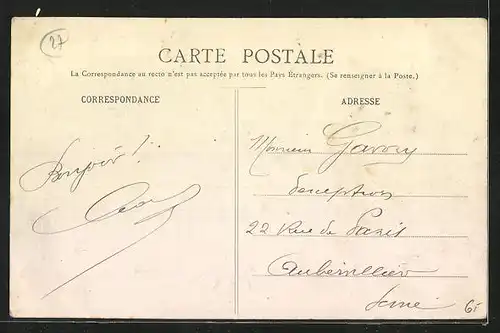 27
CARTE POSTALE
La Correspondance au recto n'est pas acceptée par tous les Pays Étrangers. (Se renseigner à la Poste.)
CORRESPONDANCE
ADRESSE
Bonjour !
Monsieur Gavory
22 Rue de Paris
Aubervilliers
Seine